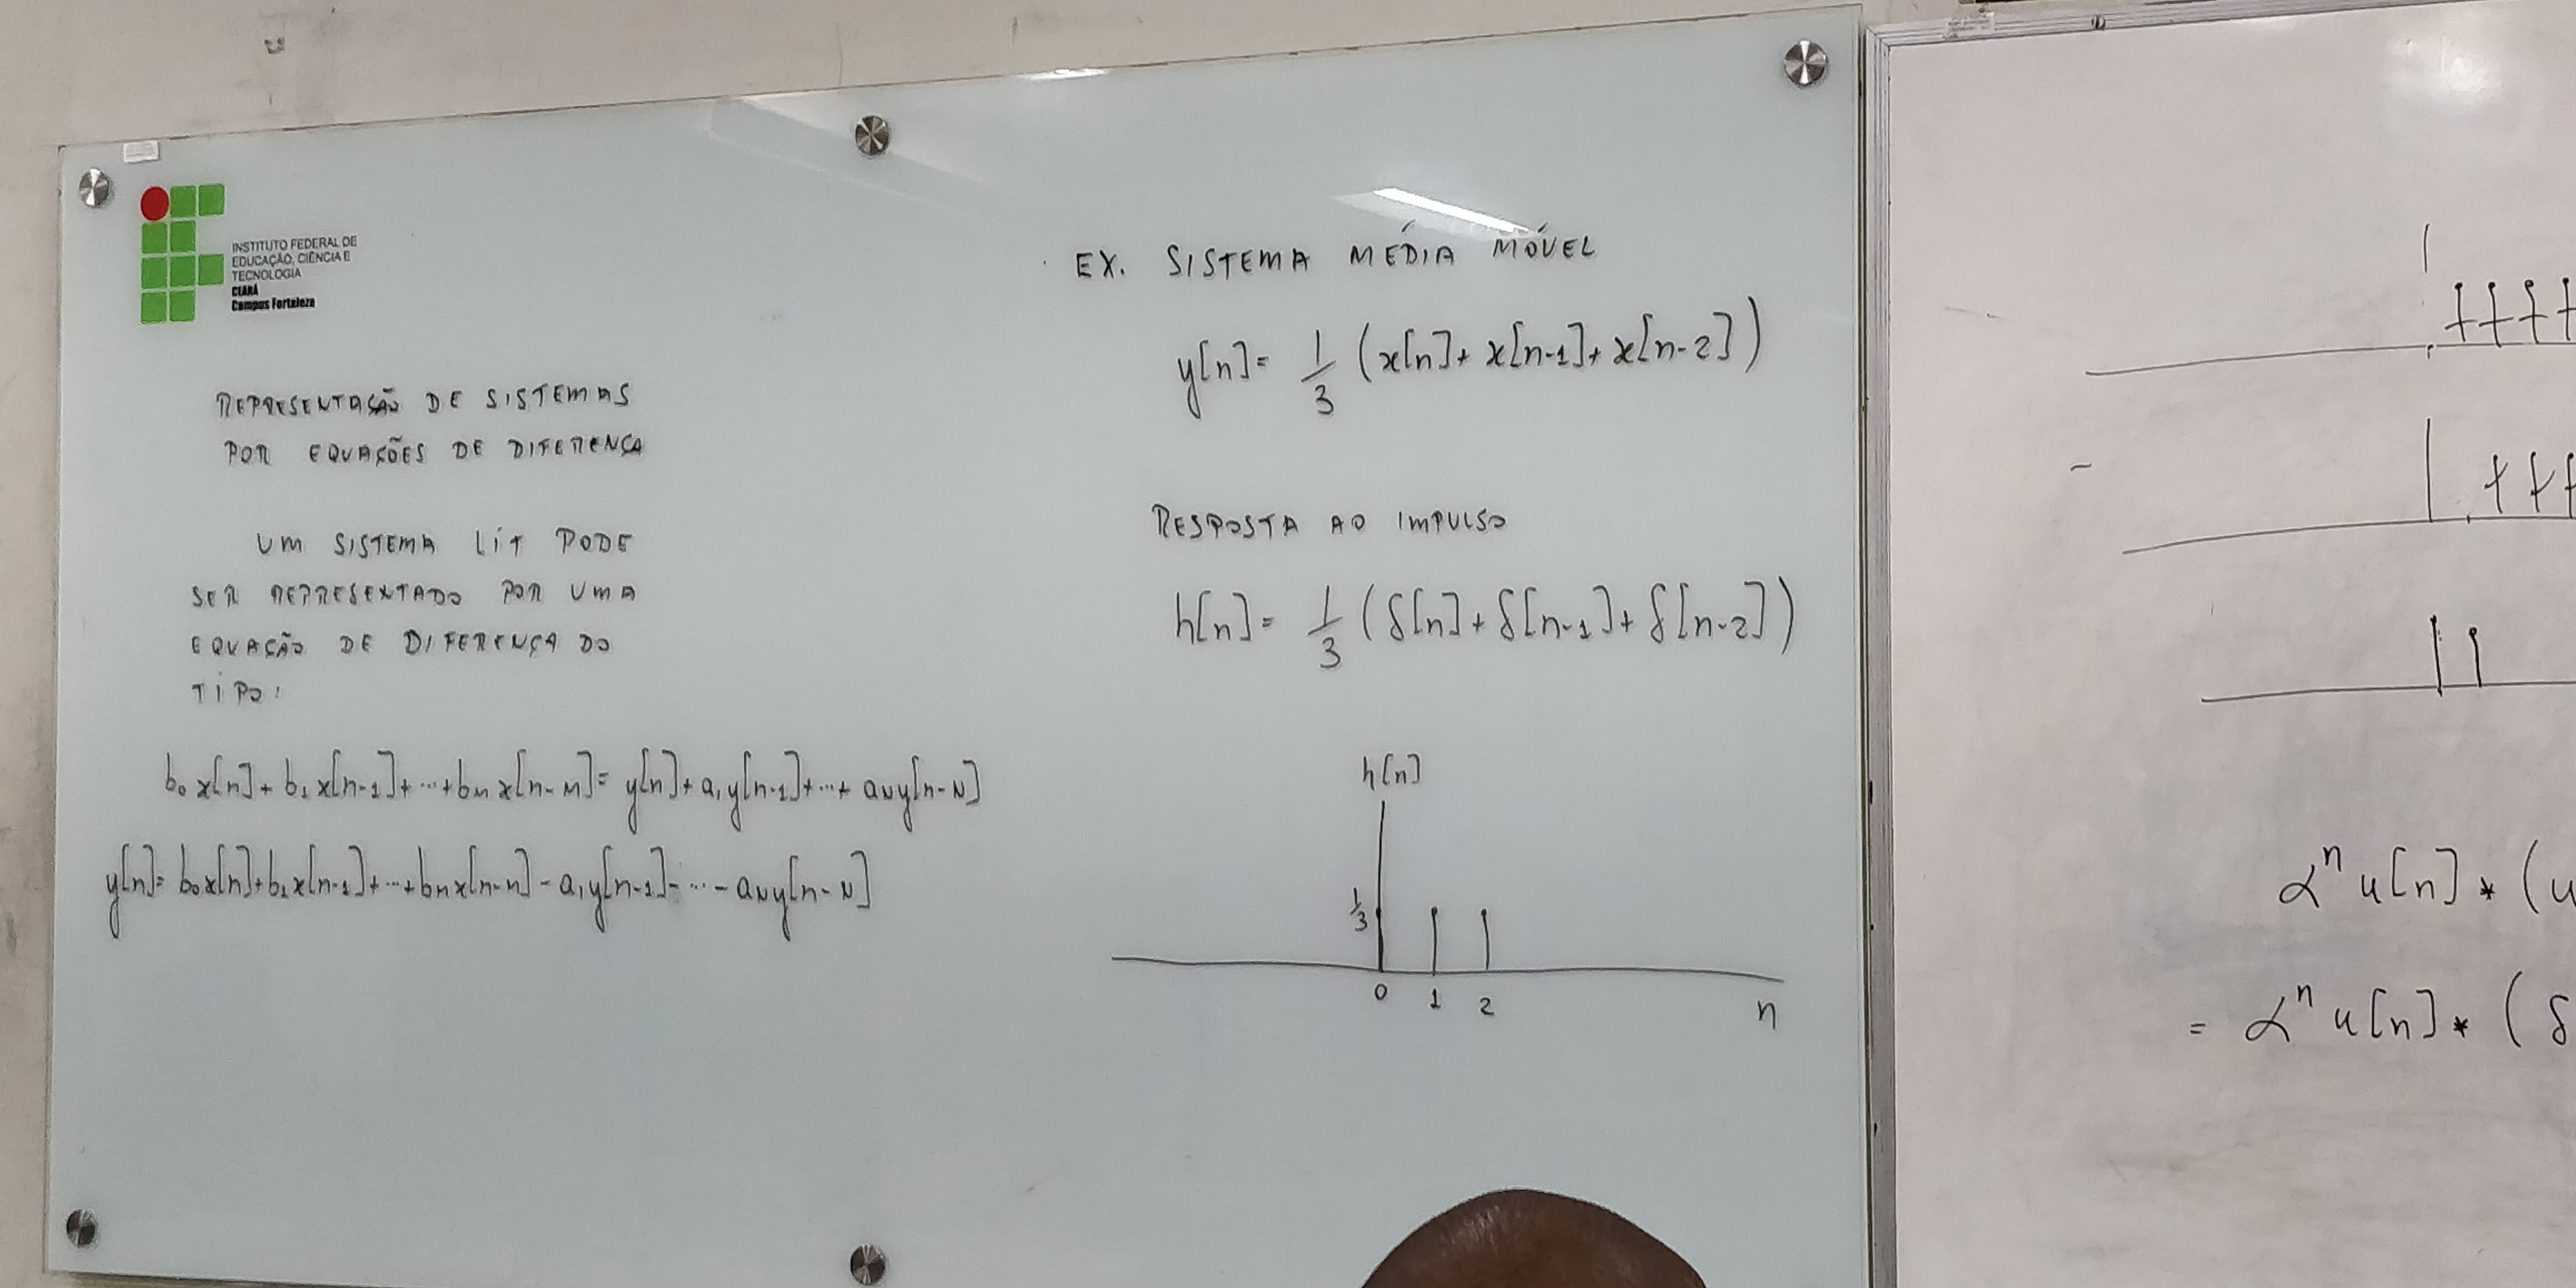 INSTITUTO FEDERAL DE
EDUCAÇÃO, CIÊNCIA E
TECNOLOGIA
CEARÁ
Campus Fortaleza
REPRESENTAÇÃO DE SISTEMAS
POR EQUAÇÕES DE DIFERENÇA
UM SISTEMA LIT PODE
SER REPRESENTADO POR UMA
EQUAÇÃO DE DIFERENÇA DO
TIPO:
b₀x[n]+b₁x[n-1]+...+bₘx[n-M]=y[n]+a₁y[n-1]+...+aɴy[n-N]
y[n]=b₀x[n]+b₁x[n-1]+...+bₘx[n-M]-a₁y[n-1]-...-aɴy[n-N]
EX. SISTEMA MÉDIA MÓVEL
y[n]= 1/3 (x[n]+x[n-1]+x[n-2])
RESPOSTA AO IMPULSO
h[n]= 1/3 (δ[n]+δ[n-1]+δ[n-2])
h[n]
1/3
0 1 2 n
αⁿu[n]*(u
= αⁿu[n]*(δ